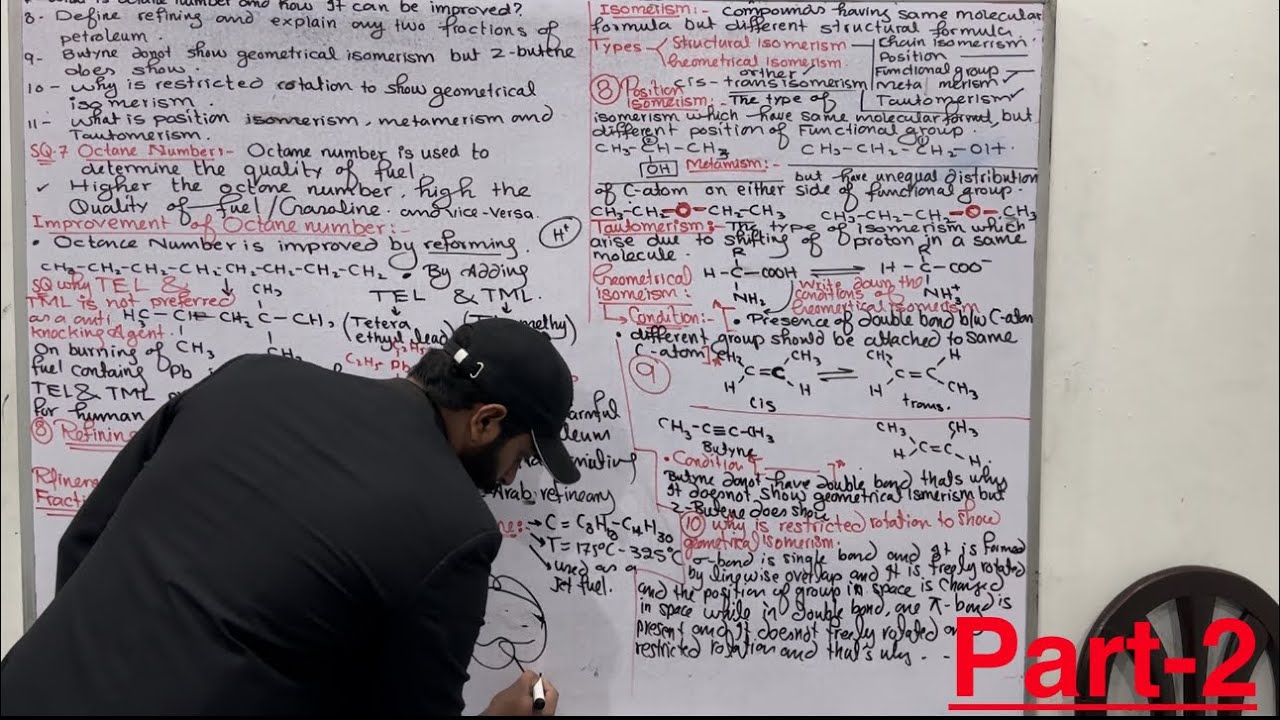 8. Define refining and explain any two fractions of
petroleum.
9- Butyne donot show geometrical isomerism but 2-butene
does show.
10- why is restricted rotation to show geometrical
isomerism.
11- what is position isomerism, metamerism and
Tautomerism.
SQ.7 Octane Number:- Octane number is used to
determine the quality of fuel
✓ Higher the octane number, high the
Quality of fuel/Gasoline. and vice-versa.
Improvement of Octane number:-
• Octance Number is improved by reforming.
H+
CH3-CH2-CH2-CH2-CH2-CH2-CH2-CH2
• By Adding
TEL & TML.
SQ why TEL &
TML is not preferred
as a anti
knocking Agent.
CH3
CH3
(Tetera
ethyl lead)
On burning of
fuel contains Pb
TEL & TML
for human
harmful
⑧ Refining
Fracti
Arab refineary
→ C =
→ T = 175°C - 325°C
→ used as a
Jet fuel.
Isomerism:- compounds having same molecular
formula but different structural formula.
Types Structural isomerism
Geometrical isomerism
cis-transisomerism
Chain isomerism.
Position
Functional group
metamerism
Tautomerism
⑧ Position
isomerism:- The type of
isomerism which have same molecular formed, but
different position of Functional group.
CH3-CH-CH3 CH3-CH2-CH2-OH.
OH
Metamism:- but have unequal distribution
of C-atom on either side of functional group.
CH3-CH2-O-CH2-CH3 CH3-CH2-CH2-O-CH3
Tautomerism:- The type of isomerism which
arise due to shifting of proton in a same
molecule.
R R
H-C-COOH ⇌ H-C-COO-
NH2 NH3+
Geometrical
isomeism:
write down the
conditions of
Geomertical isomerism
Condition:- • Presence of double bond b/w C-atom
• different group should be attached to same
C-atom
⑨
CH3 CH3 CH3 H
C=C ⇌ C=C
H H H CH3
cis trans.
CH3-C≡C-CH3
Butyne
CH3 CH3
C=C
H H
• Condition
Butyne donot have double bond thats why
It doesnot show geometrical ismerism but
2-Butene does show
⑩ why is restricted rotation to show
geometrical isomerism.
σ-bond is single bond and It is formed
by linewise overlap and It is freely rotated
and the position of group in space is changed
in space while in double bond, one π-bond is
present and It doesnot freely rotated
restricted rotation and that's why - -
Part-2